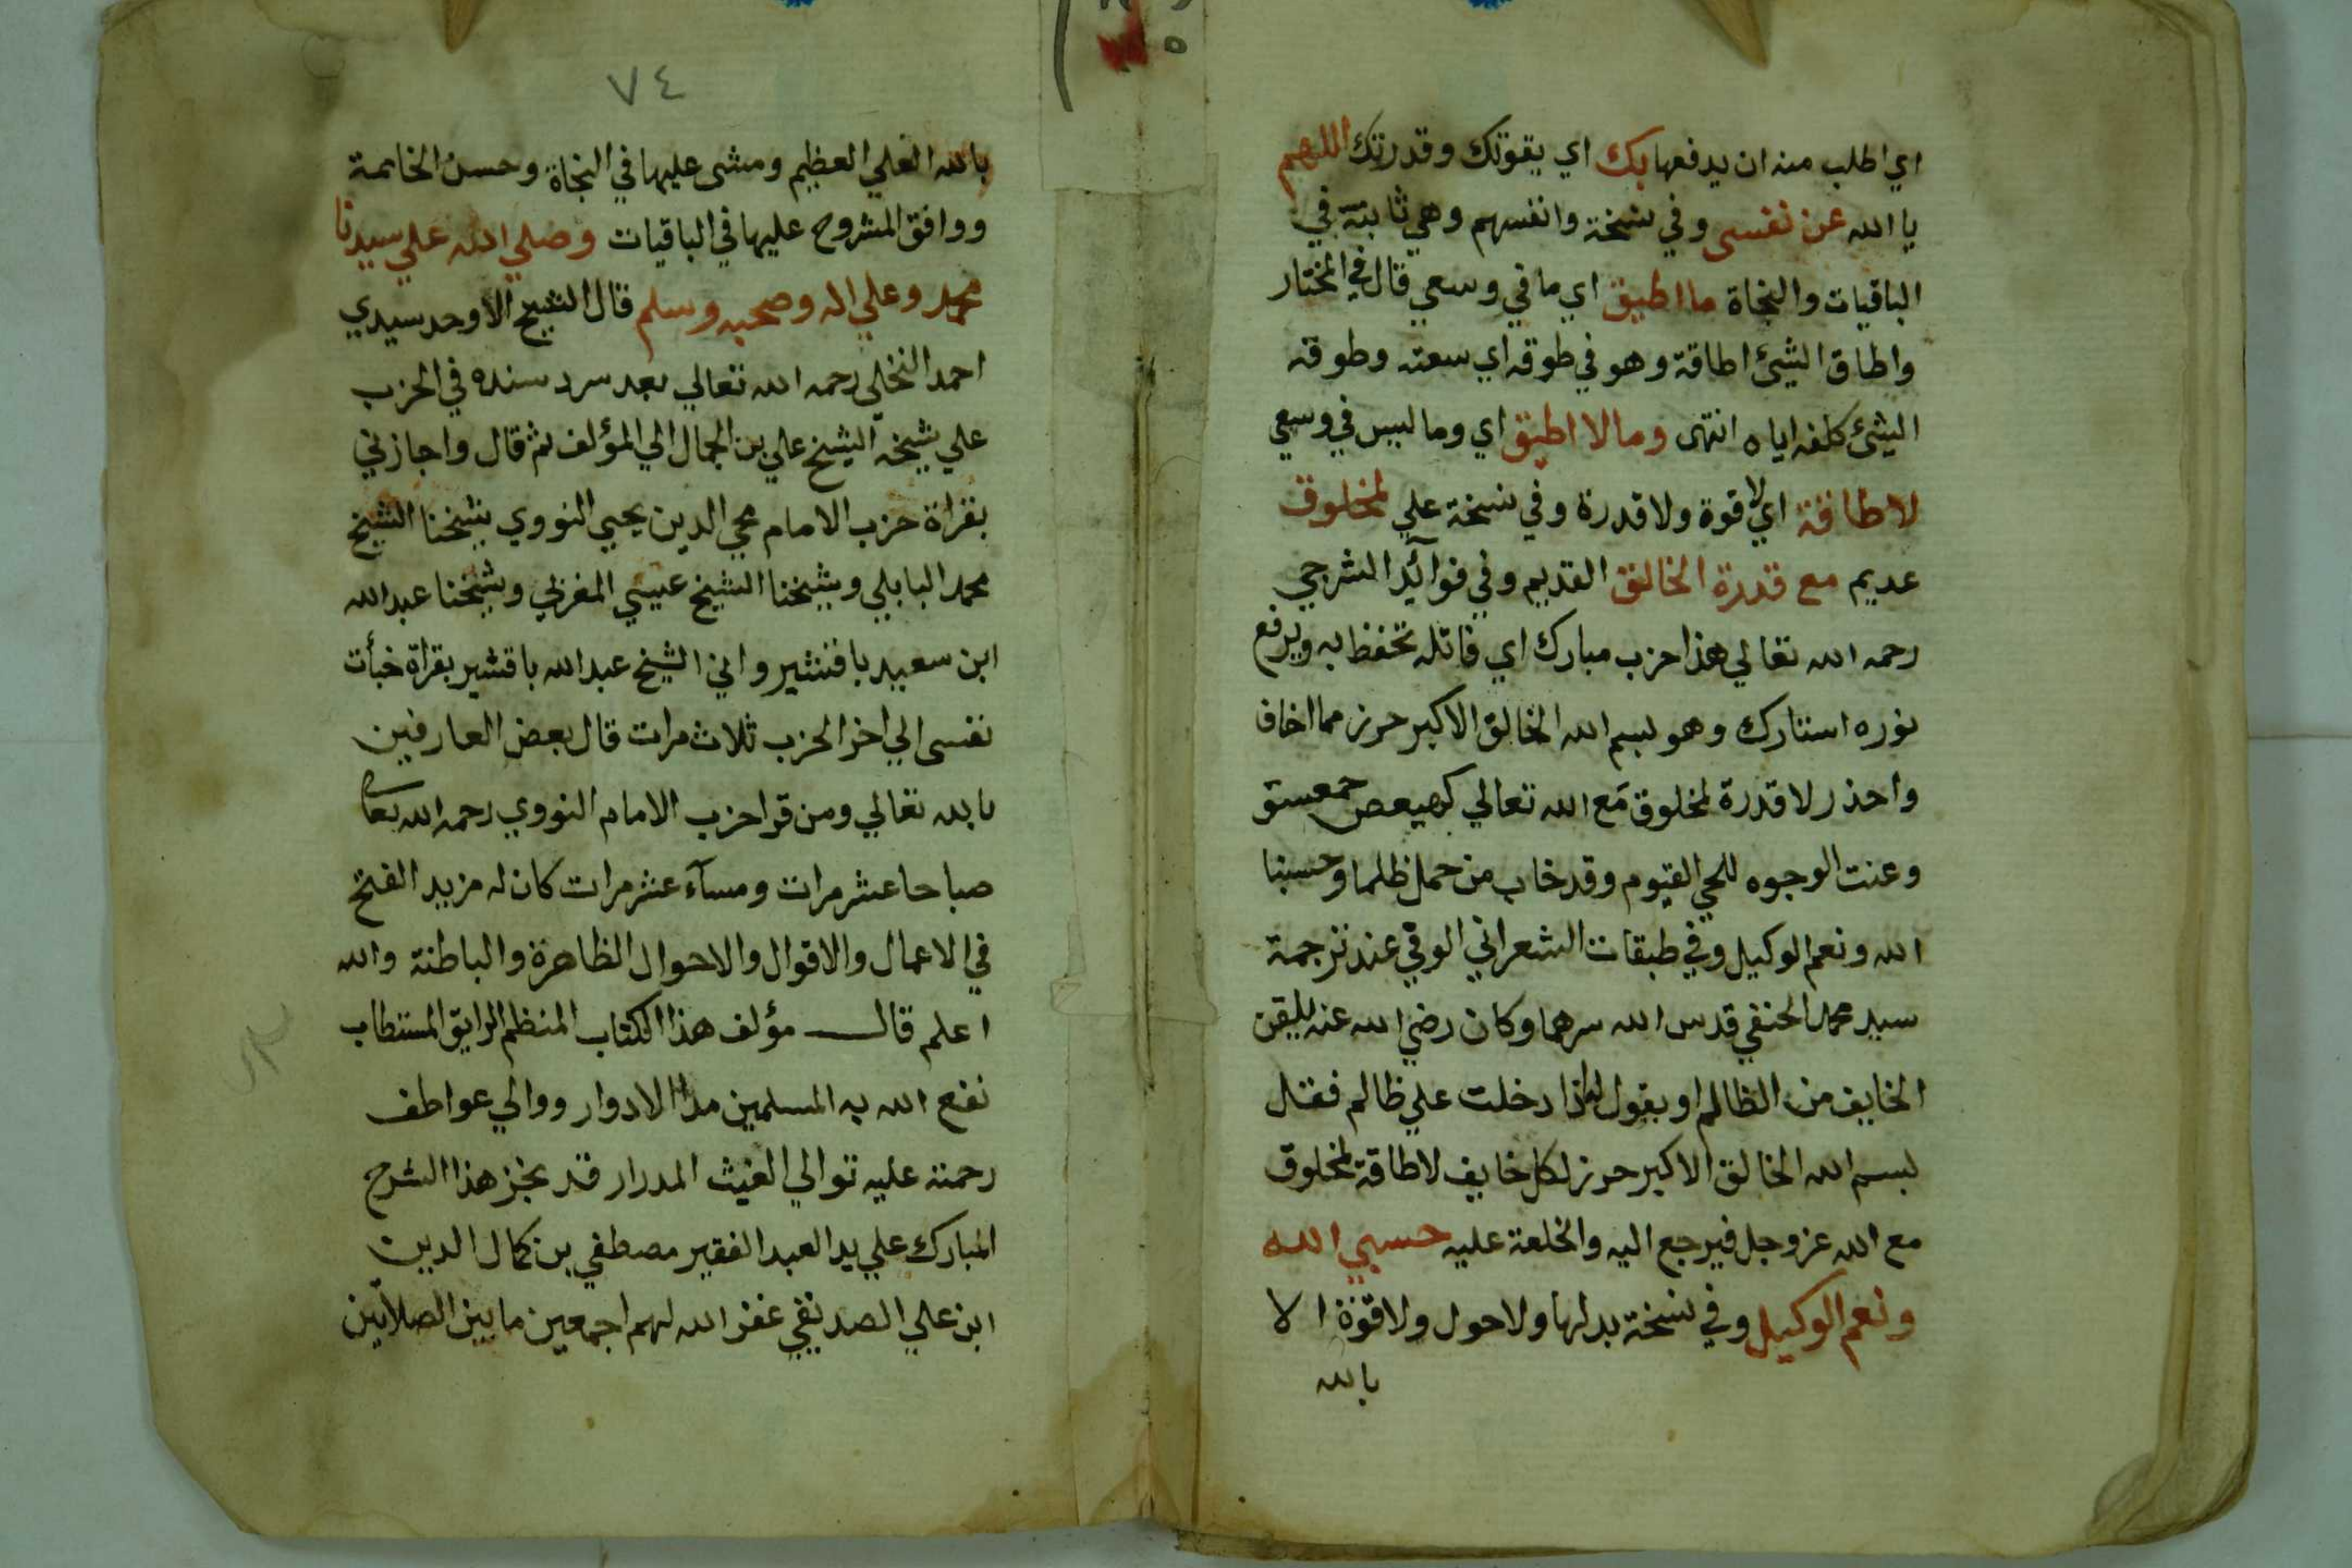 اي اطلب منه ان يدفعها بك اي بقوتك وقدرتك اللهم
يا الله عن نفسى وفي نسخة وانفسهم وهي ثابتة في
الباقيات والنجاة ما اطيق اي ما في وسعي قال في المختار
واطاق الشئ اطاقة وهو في طوقه اي سعته وطوقه
الشئ كلفه اياه انتهى وما لا اطيق اي وما ليس في وسعي
لا طاقة اي لا قوة ولا قدرة وفي نسخة علي لمخلوق
عديم مع قدرة الخالق القديم وفي فوائد الشرجي
رحمه الله تعالي هذا حزب مبارك اي قائله تحفظ به ويرفع
نوره استارك وهو بسم الله الخالق الاكبر حرز مما اخاف
واحذر لا قدرة لمخلوق مع الله تعالي كهيعص حمعسق
وعنت الوجوه للحي القيوم وقد خاب من حمل ظلما وحسبنا
الله ونعم الوكيل وفي طبقات الشعراني الوفي عند ترجمة
سيد محمد الحنفي قدس الله سرهما وكان رضي الله عنه يلقن
الخايف من الظالم او يقول له اذا دخلت علي ظالم فقل
بسم الله الخالق الاكبر حرز لكل خايف لا طاقة لمخلوق
مع الله عز وجل فيرجع اليه والخلعة عليه حسبي الله
ونعم الوكيل وفي نسخة بدلها ولا حول ولا قوة الا
بالله
٧٤
بالله العلي العظيم ومشى عليها في النجاة وحسن الخاتمة
ووافق المشروح عليها في الباقيات وصلي الله علي سيدنا
محمد وعلي اله وصحبه وسلم قال الشيخ الاوحد سيدي
احمد النخلي رحمه الله تعالي بعد سرد سنده في الحزب
علي شيخه الشيخ علي بن الجمال الي المؤلف ثم قال واجازني
بقراة حزب الامام محي الدين يحيي النووي شيخنا الشيخ
محمد البابلي وشيخنا الشيخ عيسي المغربي وشيخنا عبد الله
ابن سعيد باقشير واني الشيخ عبد الله باقشير بقراة خبأت
نفسى الي اخر الحزب ثلاث مرات قال بعض العارفين
بالله تعالي ومن قرا حزب الامام النووي رحمه الله تعا
صباحا عشر مرات ومسآء عشر مرات كان له مزيد الفتح
في الاعمال والاقوال والاحوال الظاهرة والباطنة والله
اعلم قال مؤلف هذا الكتاب المنظم الرايق المستطاب
نفع الله به المسلمين مدا الادوار ووالي عواطف
رحمته عليه توالي الغيث المدرار قد نجز هذا الشرح
المبارك علي يد العبد الفقير مصطفي بن كمال الدين
ابن علي الصديقي غفر الله لهم اجمعين ما بين الصلاتين